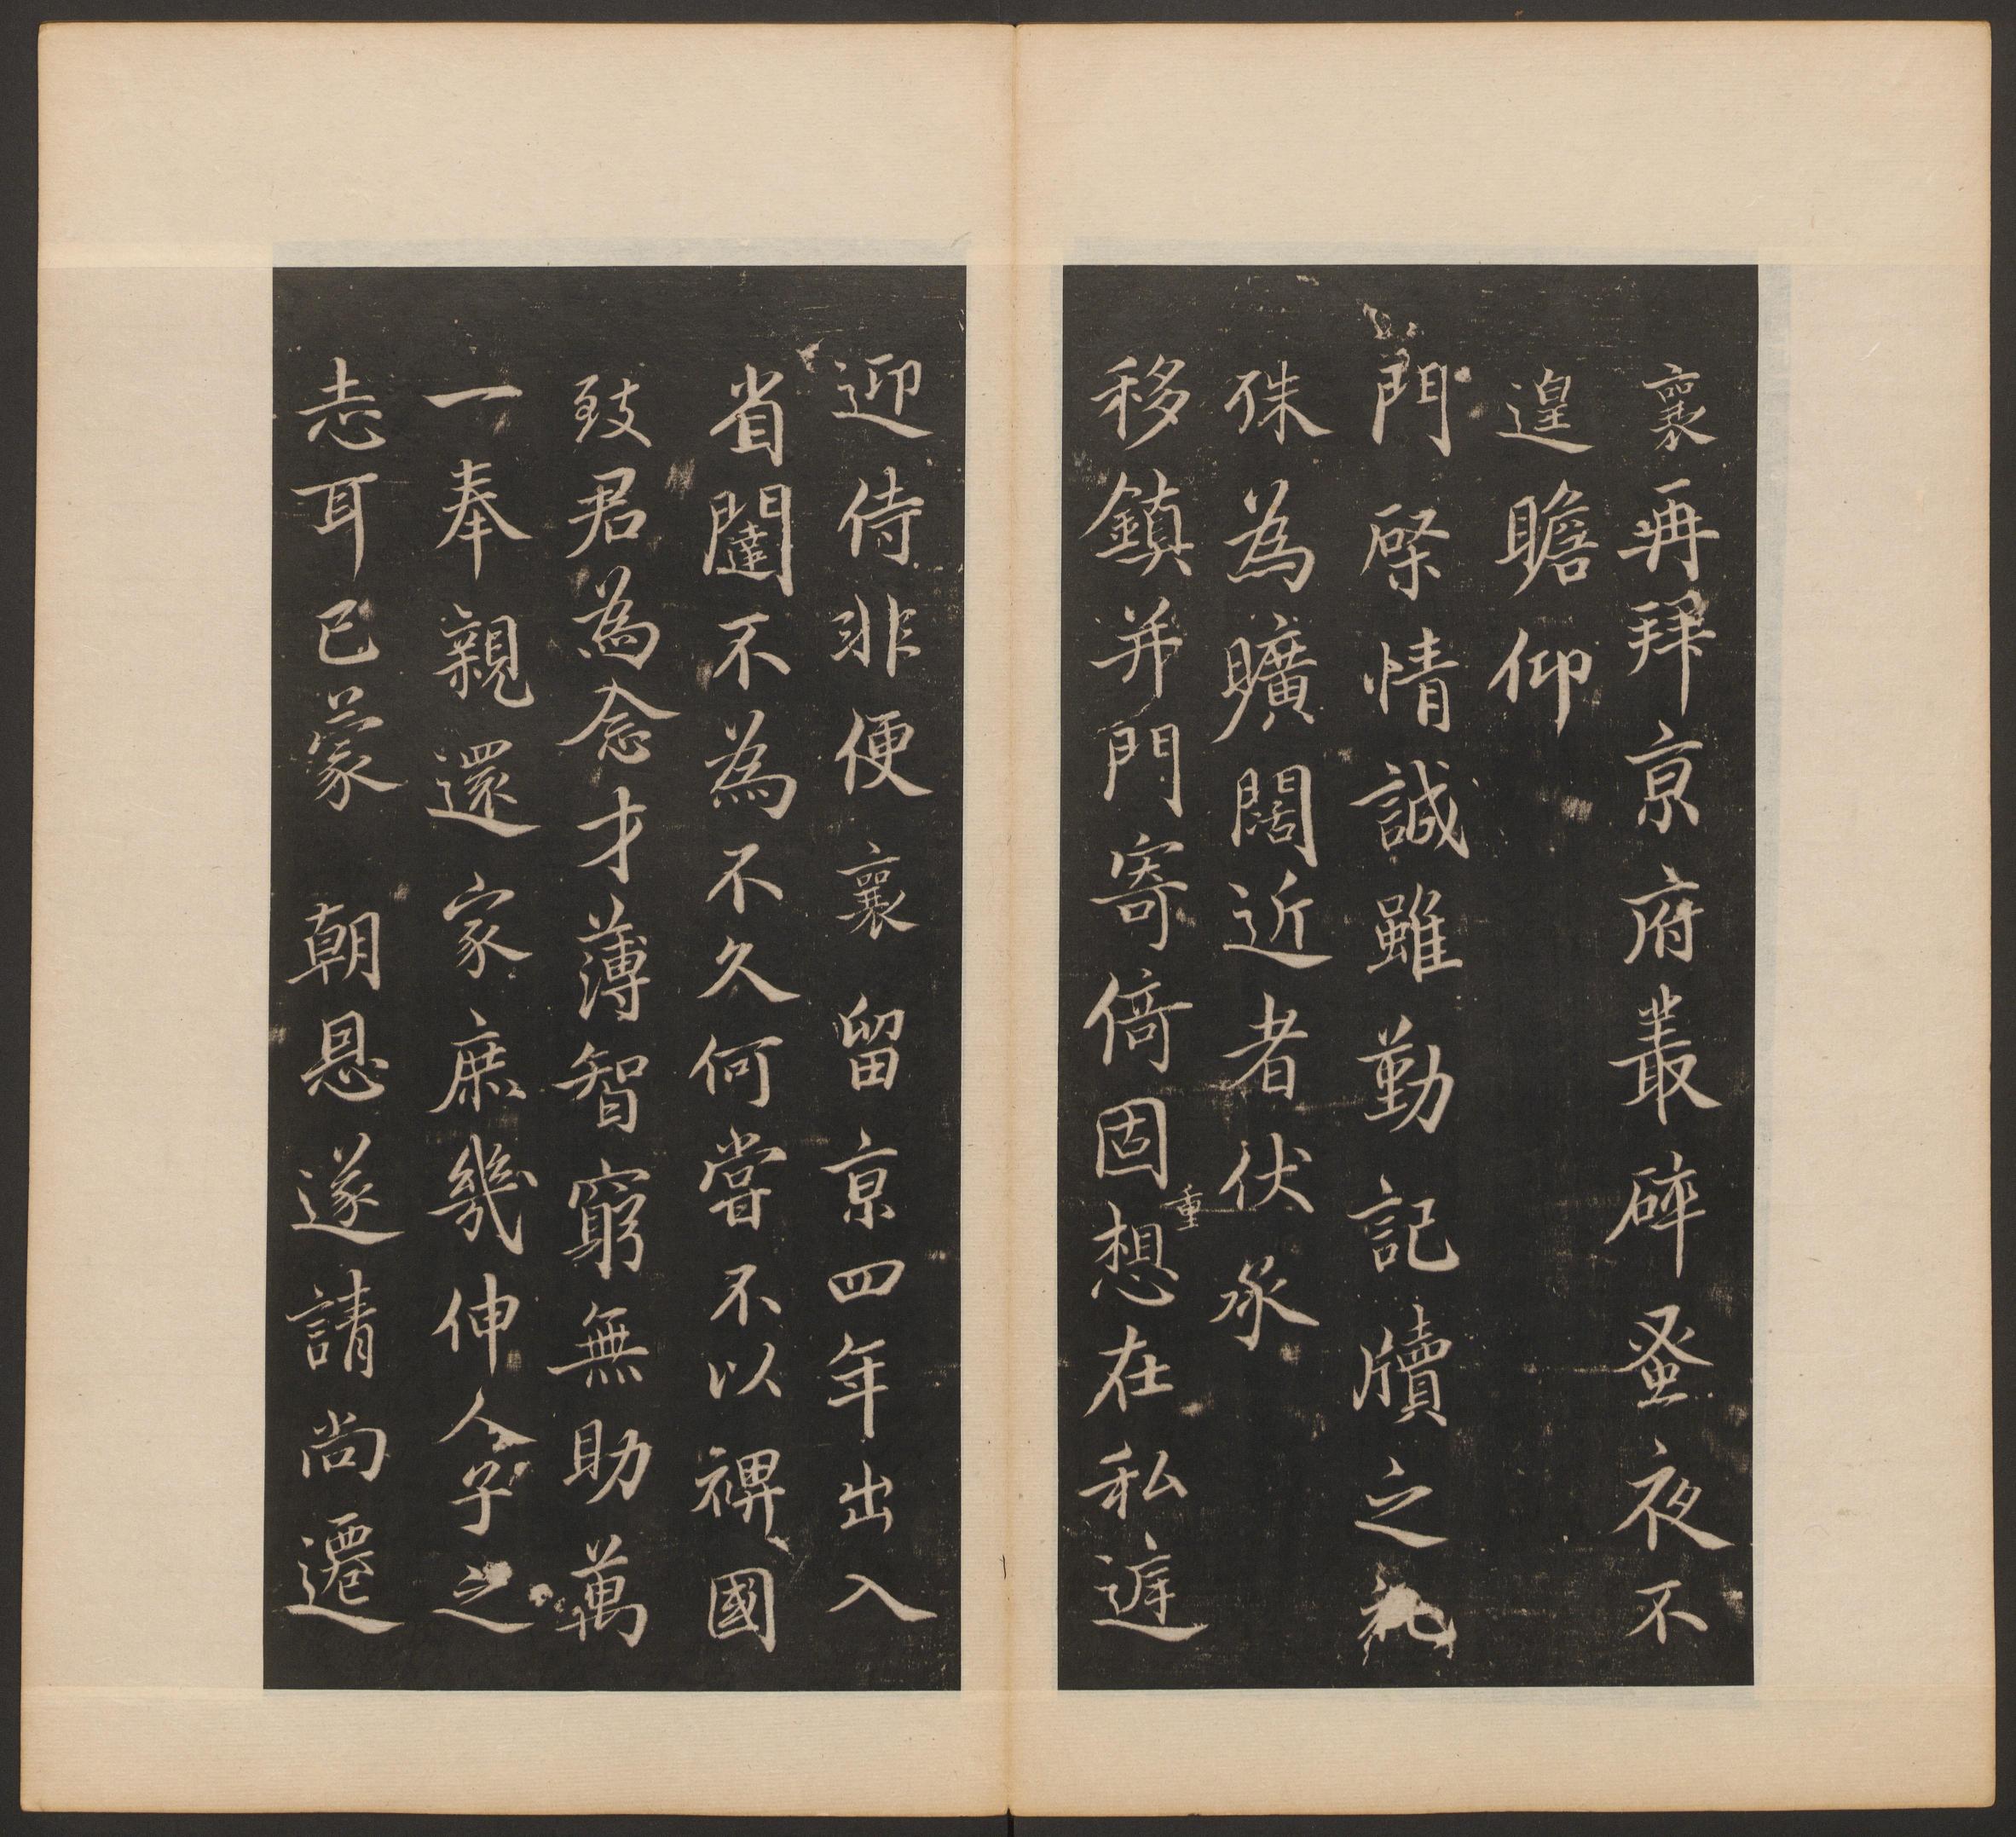 襄再拜京府叢碎蚤夜不
遑瞻仰
門棨情誠雖勤記牘之禮
殊為曠闊近者伏承
移鎮并門寄倚固重想在私遽
迎侍非便襄留京四年出入
省闥不為不久何嘗不以裨國
致君為念才薄智窮無助萬
一奉親還家庶幾伸人子之
志耳已蒙朝恩遂請尚遷